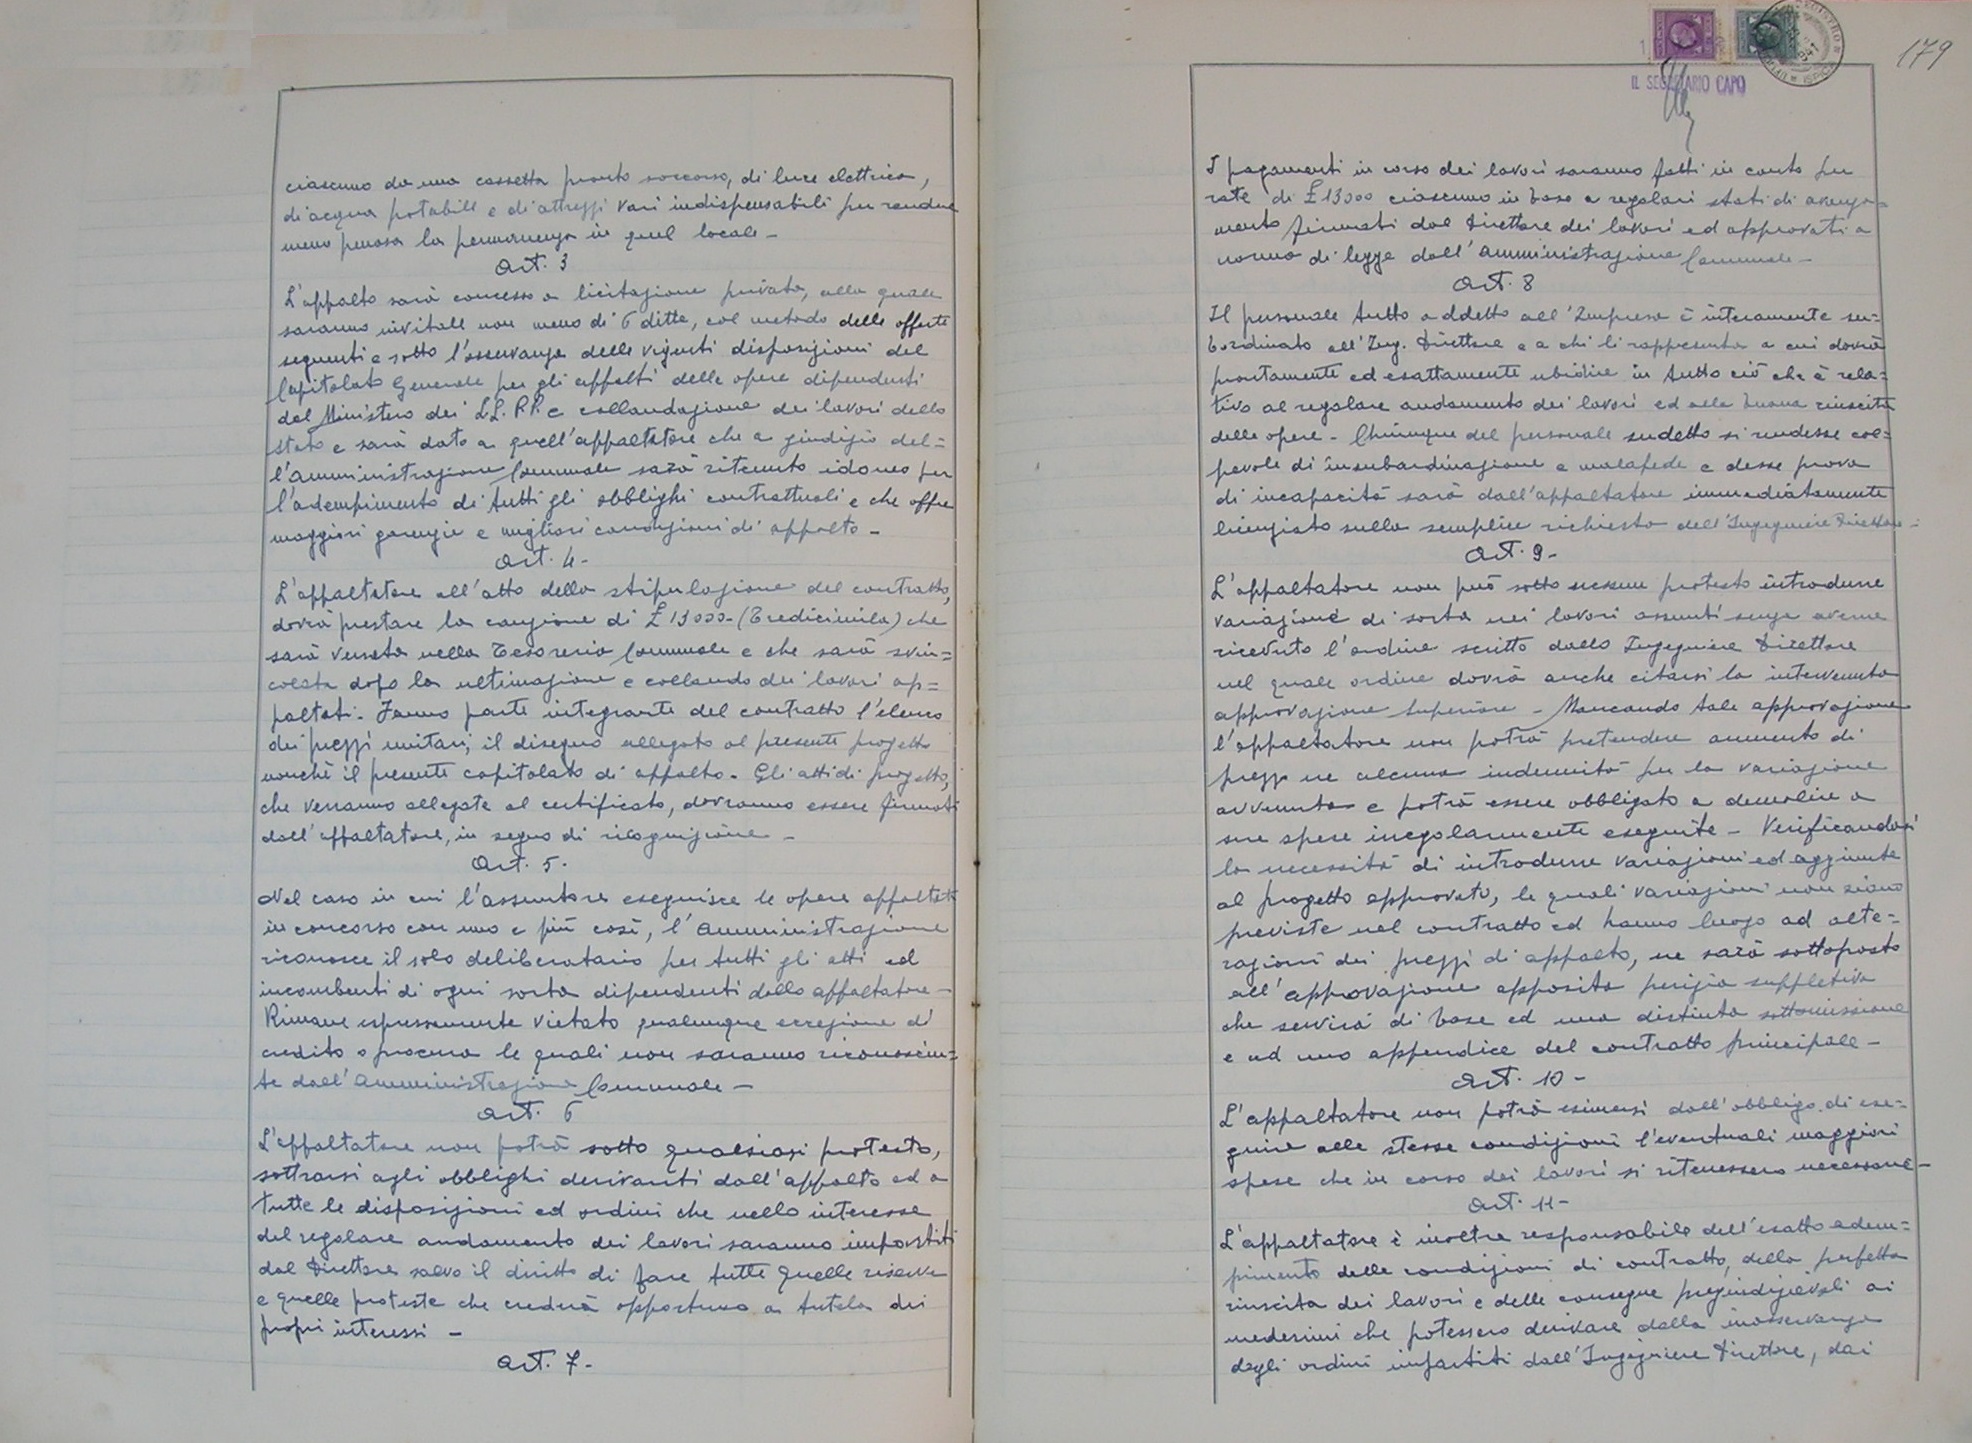 ciascuno da una cassetta pronto soccorso, di luce elettrica,
di acqua potabile e di attrezzi vari indispensabili per rendere
meno penosa la permanenza in quel locale -
Art. 3
L'appalto sarà concesso a licitazione privata, alla quale
saranno invitate non meno di 6 ditte, col metodo delle offerte
seguenti e sotto l'osservanza delle vigenti disposizioni del
Capitolato Generale per gli appalti delle opere dipendenti
dal Ministero dei LL.PP. e collaudazione dei lavori dello
Stato e sarà dato a quell'appaltatore che a giudizio del=
l'Amministrazione Comunale sarà ritenuto idoneo per
l'adempimento di tutti gli obblighi contrattuali e che offre
maggiori garenzie e migliori condizioni di appalto -
Art. 4 -
L'appaltatore all'atto della stipulazione del contratto,
dovrà prestare la cauzione di £ 13000 - (Tredicimila) che
sarà versata nella Tesoreria Comunale e che sarà svin=
colata dopo la ultimazione e collaudo dei lavori ap=
paltati. Fanno parte integrante del contratto l'elenco
dei prezzi unitari, il disegno allegato al presente progetto
nonchè il presente capitolato di appalto - Gli atti di progetto,
che verranno allegate al certificato, dovranno essere firmati
dall'appaltatore, in segno di ricognizione -
Art. 5 -
Nel caso in cui l'assuntore eseguisce le opere appaltate
in concorso con uno e più così, l'Amministrazione
riconosce il solo deliberatario per tutti gli atti ed
incombenti di ogni sorta dipendenti dallo appaltatore -
Rimane espressamente vietato qualunque cessione di
credito o procura le quali non saranno riconosciu=
te dall'Amministrazione Comunale -
Art. 6
L'appaltatore non potrà sotto qualsiasi protesto,
sottrarsi agli obblighi derivanti dall'appalto ed a
tutte le disposizioni ed ordini che nello interesse
del regolare andamento dei lavori saranno impartiti
dal Direttore salvo il diritto di fare tutte quelle riserve
e quelle proteste che crederà opportuno a tutela dei
propri interessi -
Art. 7 -
179
IL SEGRETARIO CAPO
I pagamenti in corso dei lavori saranno fatti in conto per
rate di £ 13000 ciascuno in base a regolari stati di avanza=
mento firmati dal Direttore dei lavori ed approvati a
norma di legge dall'Amministrazione Comunale -
Art. 8
Il personale tutto addetto all'Impresa è interamente su=
bordinato all'Ing. Direttore e a chi li rappresenta a cui dovrà
prontamente ed esattamente ubidire in tutto ciò che è rela=
tivo al regolare andamento dei lavori ed alla buona riuscita
delle opere - Chiunque del personale sudetto si rendesse col=
pevole di insubordinazione e malafede e desse prova
di incapacità sarà dall'appaltatore immediatamente
licenziato sulla semplice richiesta dell'Ingegniere Direttore -
Art. 9 -
L'appaltatore non può sotto nessun protesto introdurre
variazione di sorta nei lavori assunti senza averne
ricevuto l'ordine scritto dallo Ingegniere Direttore
nel quale ordine dovrà anche citarsi la intervenuta
approvazione Superiore - Mancando tale approvazione
l'appaltatore non potrà pretendere aumento di
prezzi ne alcuna indennità per la variazione
avvenuta e potrà essere obbligato a demolire a
sue spese irregolarmente eseguite - Verificandosi
la necessità di introdurre variazioni ed aggiunte
al progetto approvato, le quali variazioni non siano
previste nel contratto ed hanno luogo ad alte=
razioni dei prezzi di appalto, ne sarà sottoposto
all'approvazione apposita perizia suppletiva
che servirà di base ed una distinta sottomissione
e ad uno appendice del contratto principale -
Art. 10 -
L'appaltatore non potrà esimersi dall'obbligo di ese=
guire alle stesse condizioni l'eventuali maggiori
spese che in corso dei lavori si ritenessero necessarie -
Art. 11 -
L'appaltatore è inoltre responsabile dell'esatto adem=
pimento delle condizioni di contratto, della perfetta
riuscita dei lavori e delle consegne pregiudizievoli ai
medesimi che potessero derivare dalla inosservanza
degli ordini impartiti dall'Ingegniere Direttore, dai